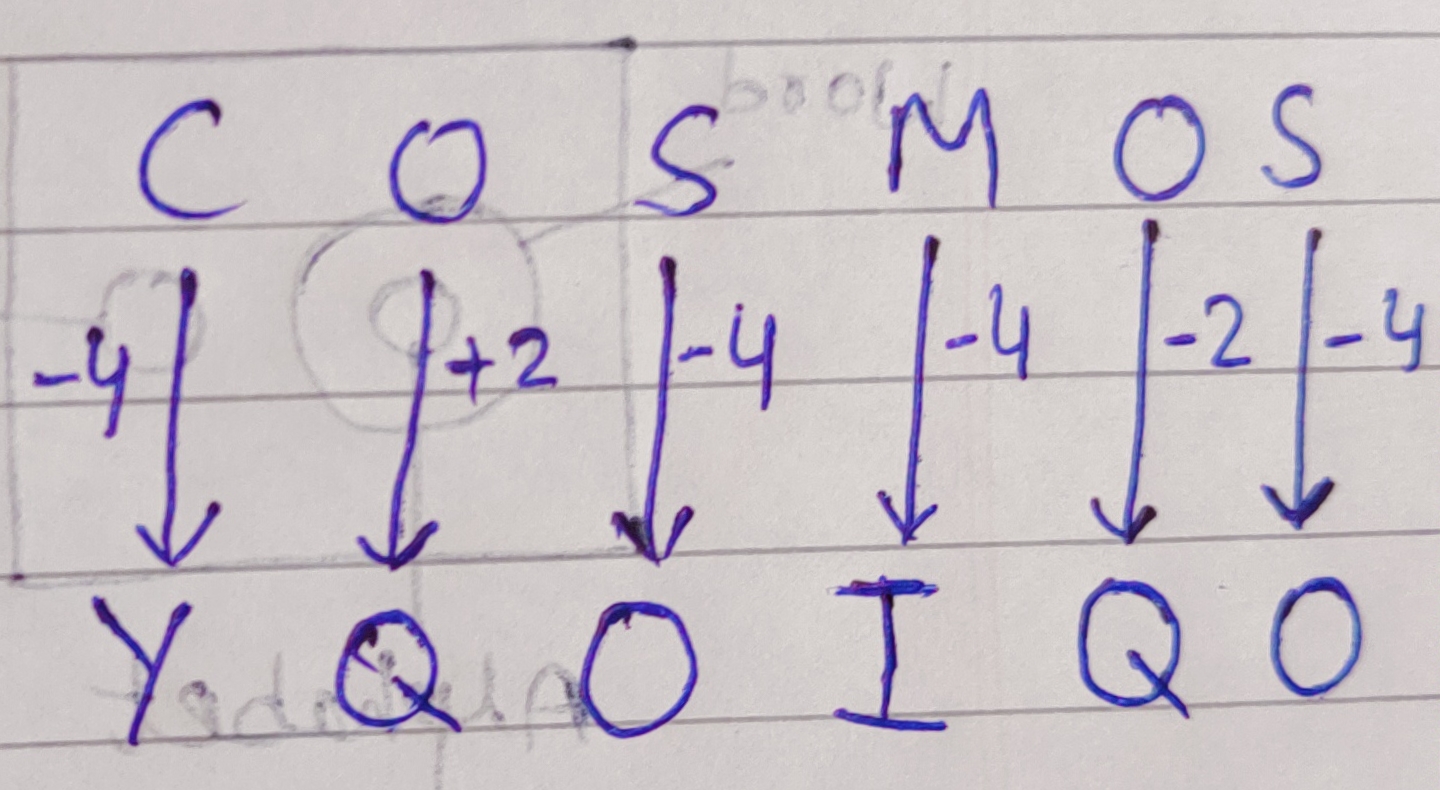 C O S M O S
-4 +2 -4 -4 -2 -4
Y Q O I Q O